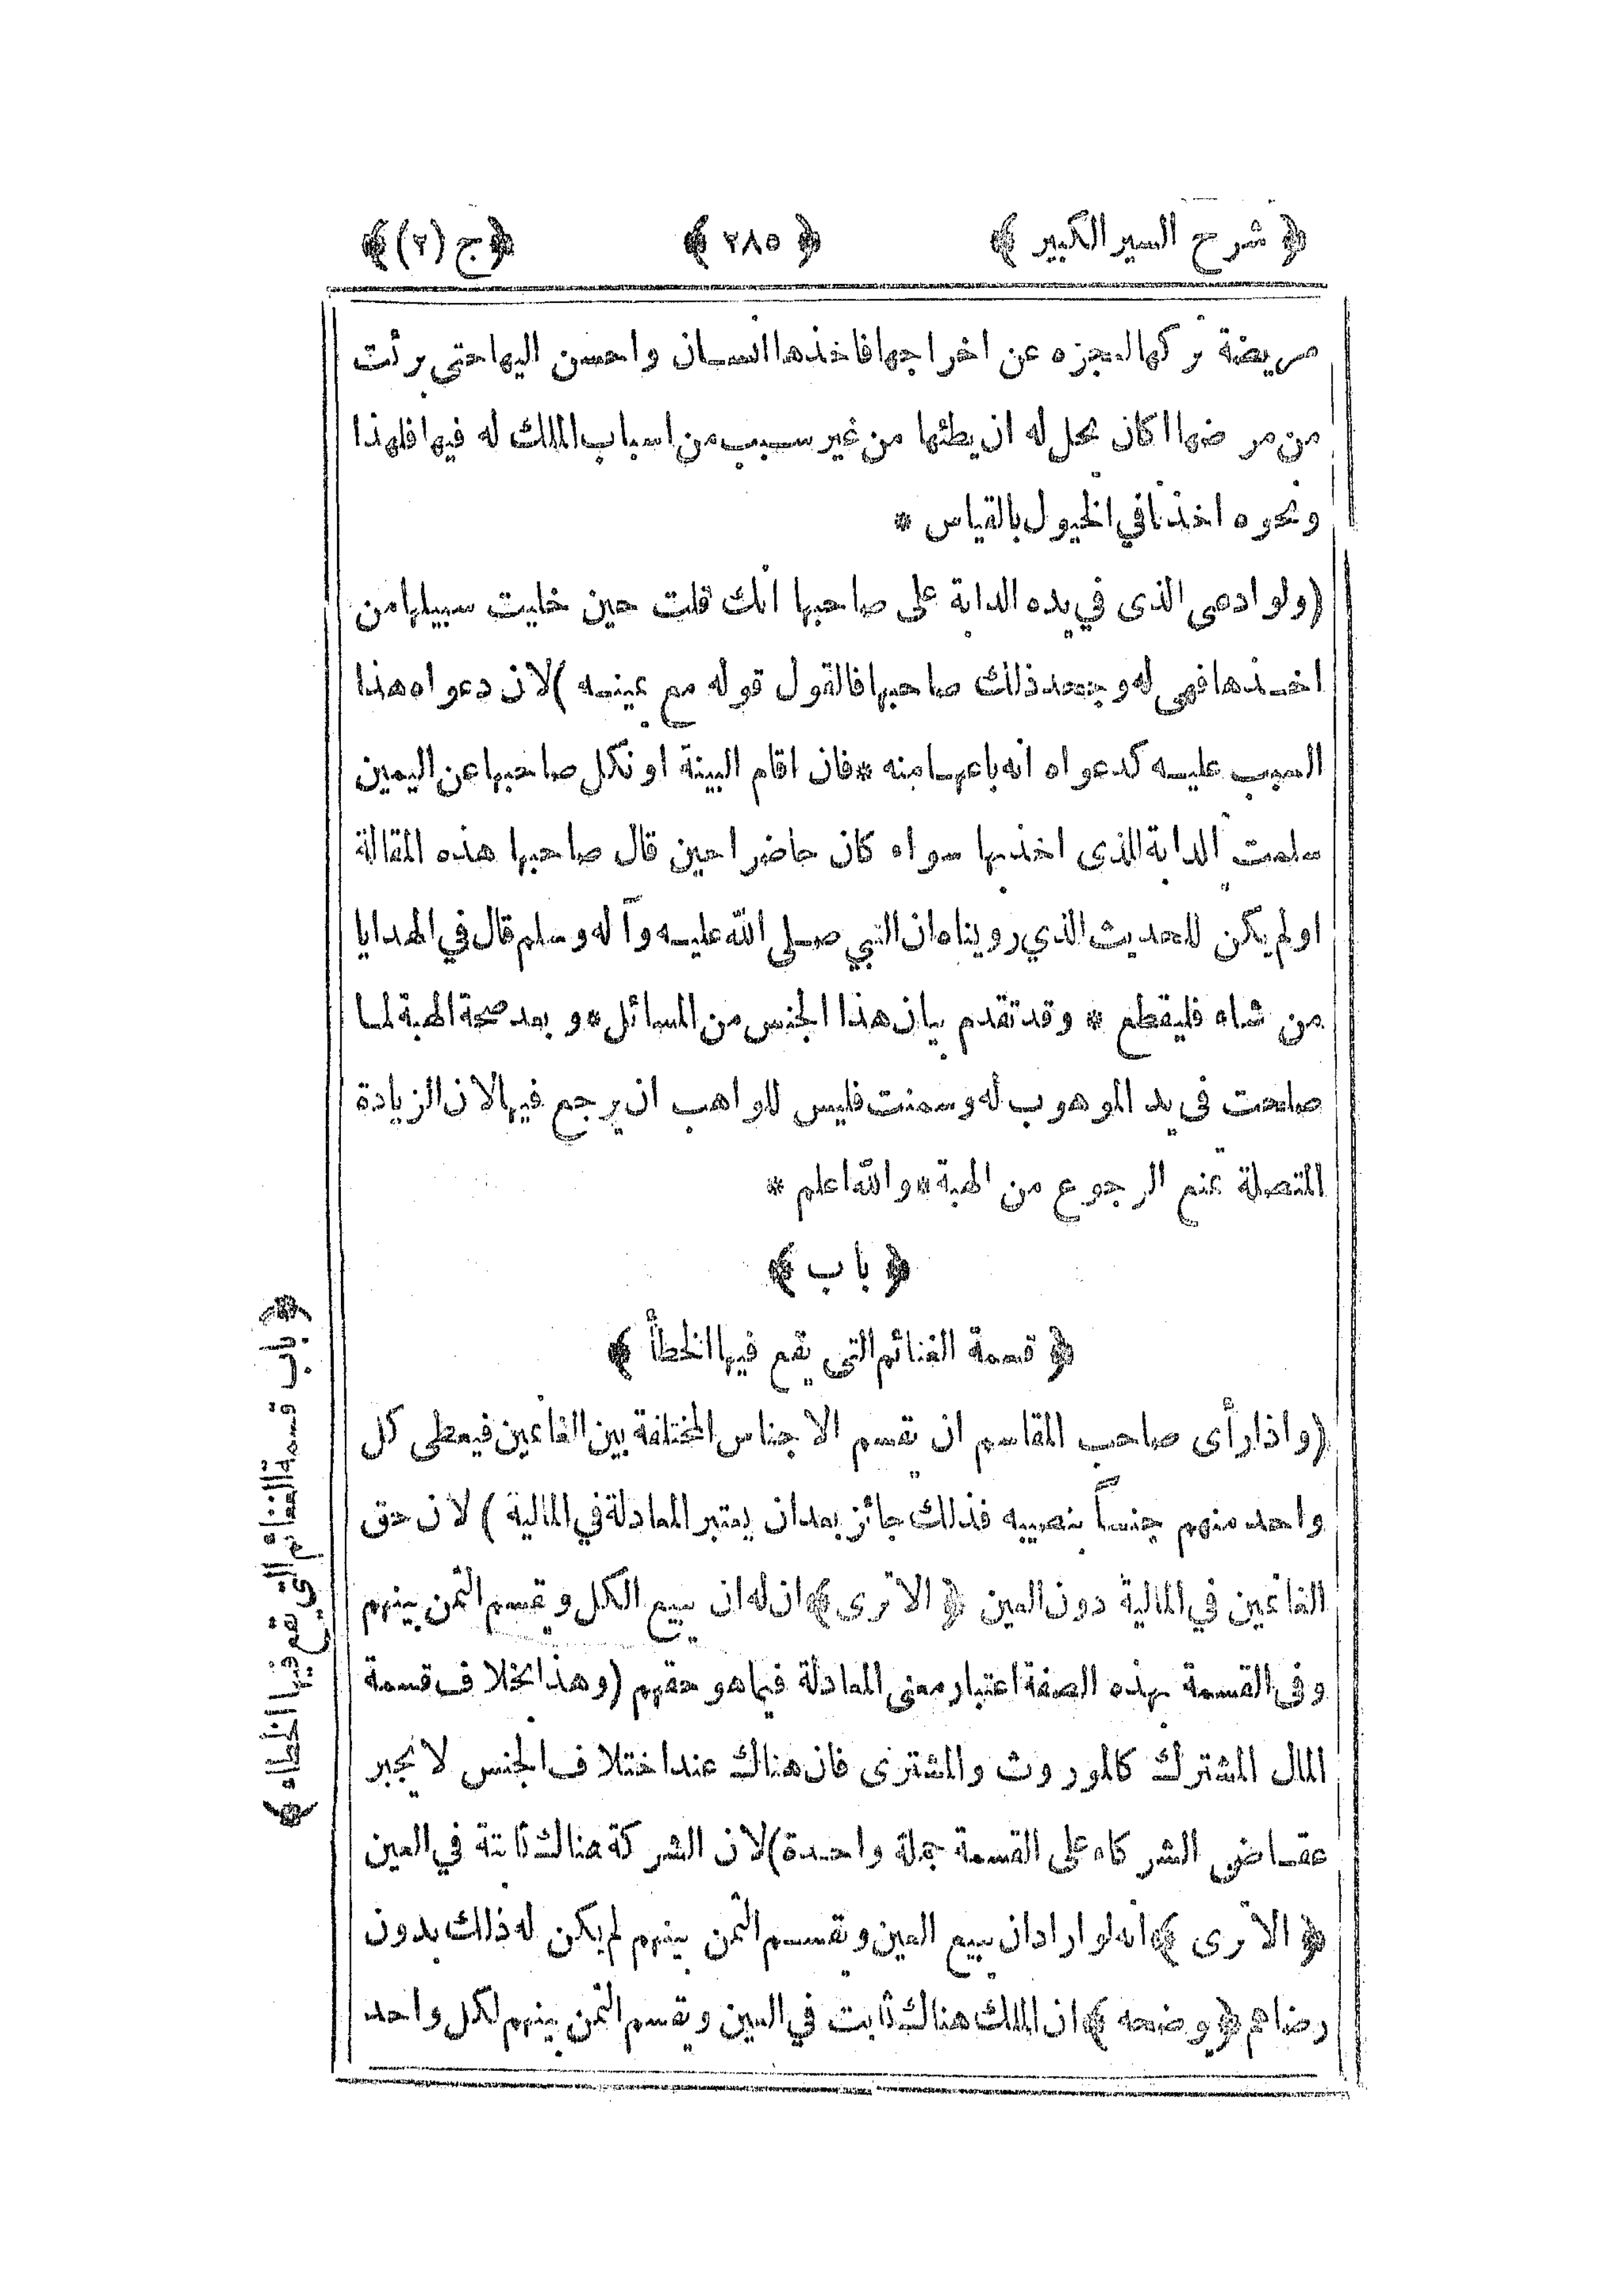 ﴿ شرح السير الكبير ﴾ ﴿ ٢٨٥ ﴾ ﴿ ج (٢) ﴾
مريضة تركها لعجزه عن اخراجها فاخذها انسان واحسن اليها حتى برئت
من مرضها اكان يحل له ان يطئها من غير سبب من اسباب الملك له فيها فلهذا
ونحوه اخذنا في الخيول بالقياس *
(ولو ادعى الذى في يده الدابة على صاحبها انك قلت حين خليت سبيلها من
اخذها فهى له وجحد ذلك صاحبها فالقول قوله مع يمينه) لان دعواه هذا
السبب عليه كدعواه انه باعها منه * فان اقام البينة او نكل صاحبها عن اليمين
سلمت الدابة للذى اخذها سواء كان حاضرا حين قال صاحبها هذه المقالة
او لم يكن للحديث الذي رويناه ان النبي صلى الله عليه وآله وسلم قال في الهدايا
من شاء فليقطع * وقد تقدم بيان هذا الجنس من المسائل * وبعد صحة الهبة لما
صلحت فى يد الموهوب له وسمنت فليس للواهب ان يرجع فيها لان الزيادة
المتصلة تمنع الرجوع من الهبة * والله اعلم *
﴿ باب ﴾
﴿ قسمة الغنائم التى يقع فيها الخطأ ﴾
(واذا رأى صاحب المقاسم ان يقسم الاجناس المختلفة بين الغانمين فيعطى كل
واحد منهم جنساً بنصيبه فذلك جائز بعد ان يعتبر المعادلة في المالية) لان حق
الغانمين في المالية دون العين ﴿ الا ترى ﴾ ان له ان يبيع الكل ويقسم الثمن بينهم
وفى القسمة بهذه الصفة اعتبار معنى المعادلة فيما هو حقهم (وهذا بخلاف قسمة
المال المشترك كالموروث والمشترى فان هناك عند اختلاف الجنس لا يجبر
القاضى الشركاء على القسمة جملة واحدة) لان الشركة هناك ثابتة في العين
﴿ الا ترى ﴾ انه لو اراد ان يبيع العين ويقسم الثمن بينهم لم يكن له ذلك بدون
رضاهم ﴿ يوضحه ﴾ ان الملك هناك ثابت في العين ويقسم الثمن بينهم لكل واحد
﴿ باب قسمة الغنائم التي تقع فيها الخطاء ﴾